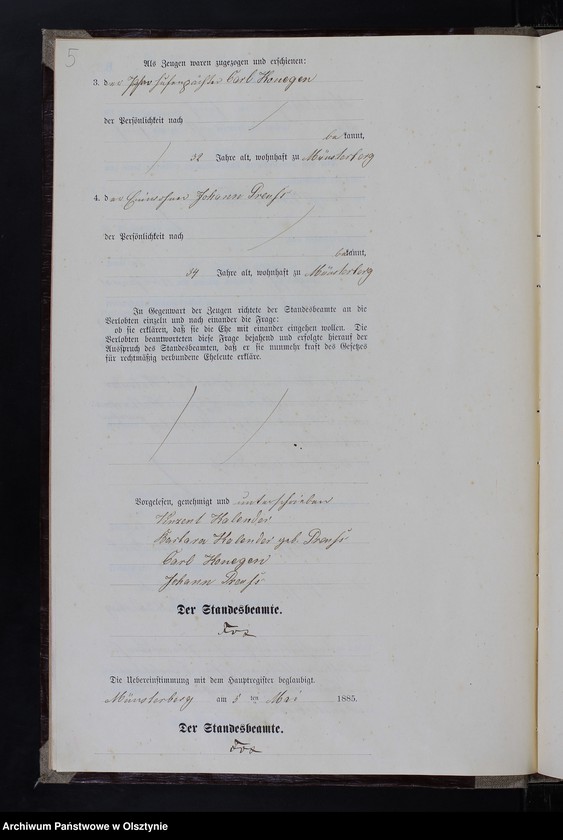 5
Als Zeugen waren zugezogen und erschienen:
3. der Pfarrhufenpächter Carl Honegen
der Persönlichkeit nach
be kannt,
32 Jahre alt, wohnhaft zu Münsterberg
4. der Einwohner Johann Preuß
der Persönlichkeit nach
bekannt,
34 Jahre alt, wohnhaft zu Münsterberg
In Gegenwart der Zeugen richtete der Standesbeamte an die
Verlobten einzeln und nach einander die Frage:
ob sie erklären, daß sie die Ehe mit einander eingehen wollen. Die
Verlobten beantworteten diese Frage bejahend und erfolgte hierauf der
Ausspruch des Standesbeamten, daß er sie nunmehr kraft des Gesetzes
für rechtmäßig verbundene Eheleute erkläre.
Vorgelesen, genehmigt und unterschrieben
Vinzent Kalender
Barbara Kalender geb. Preuß
Carl Honegen
Johann Preuß
Der Standesbeamte.
Fox
Die Uebereinstimmung mit dem Hauptregister beglaubigt.
Münsterberg am 3 ten Mai 1885.
Der Standesbeamte.
Fox
Archiwum Państwowe w Olsztynie